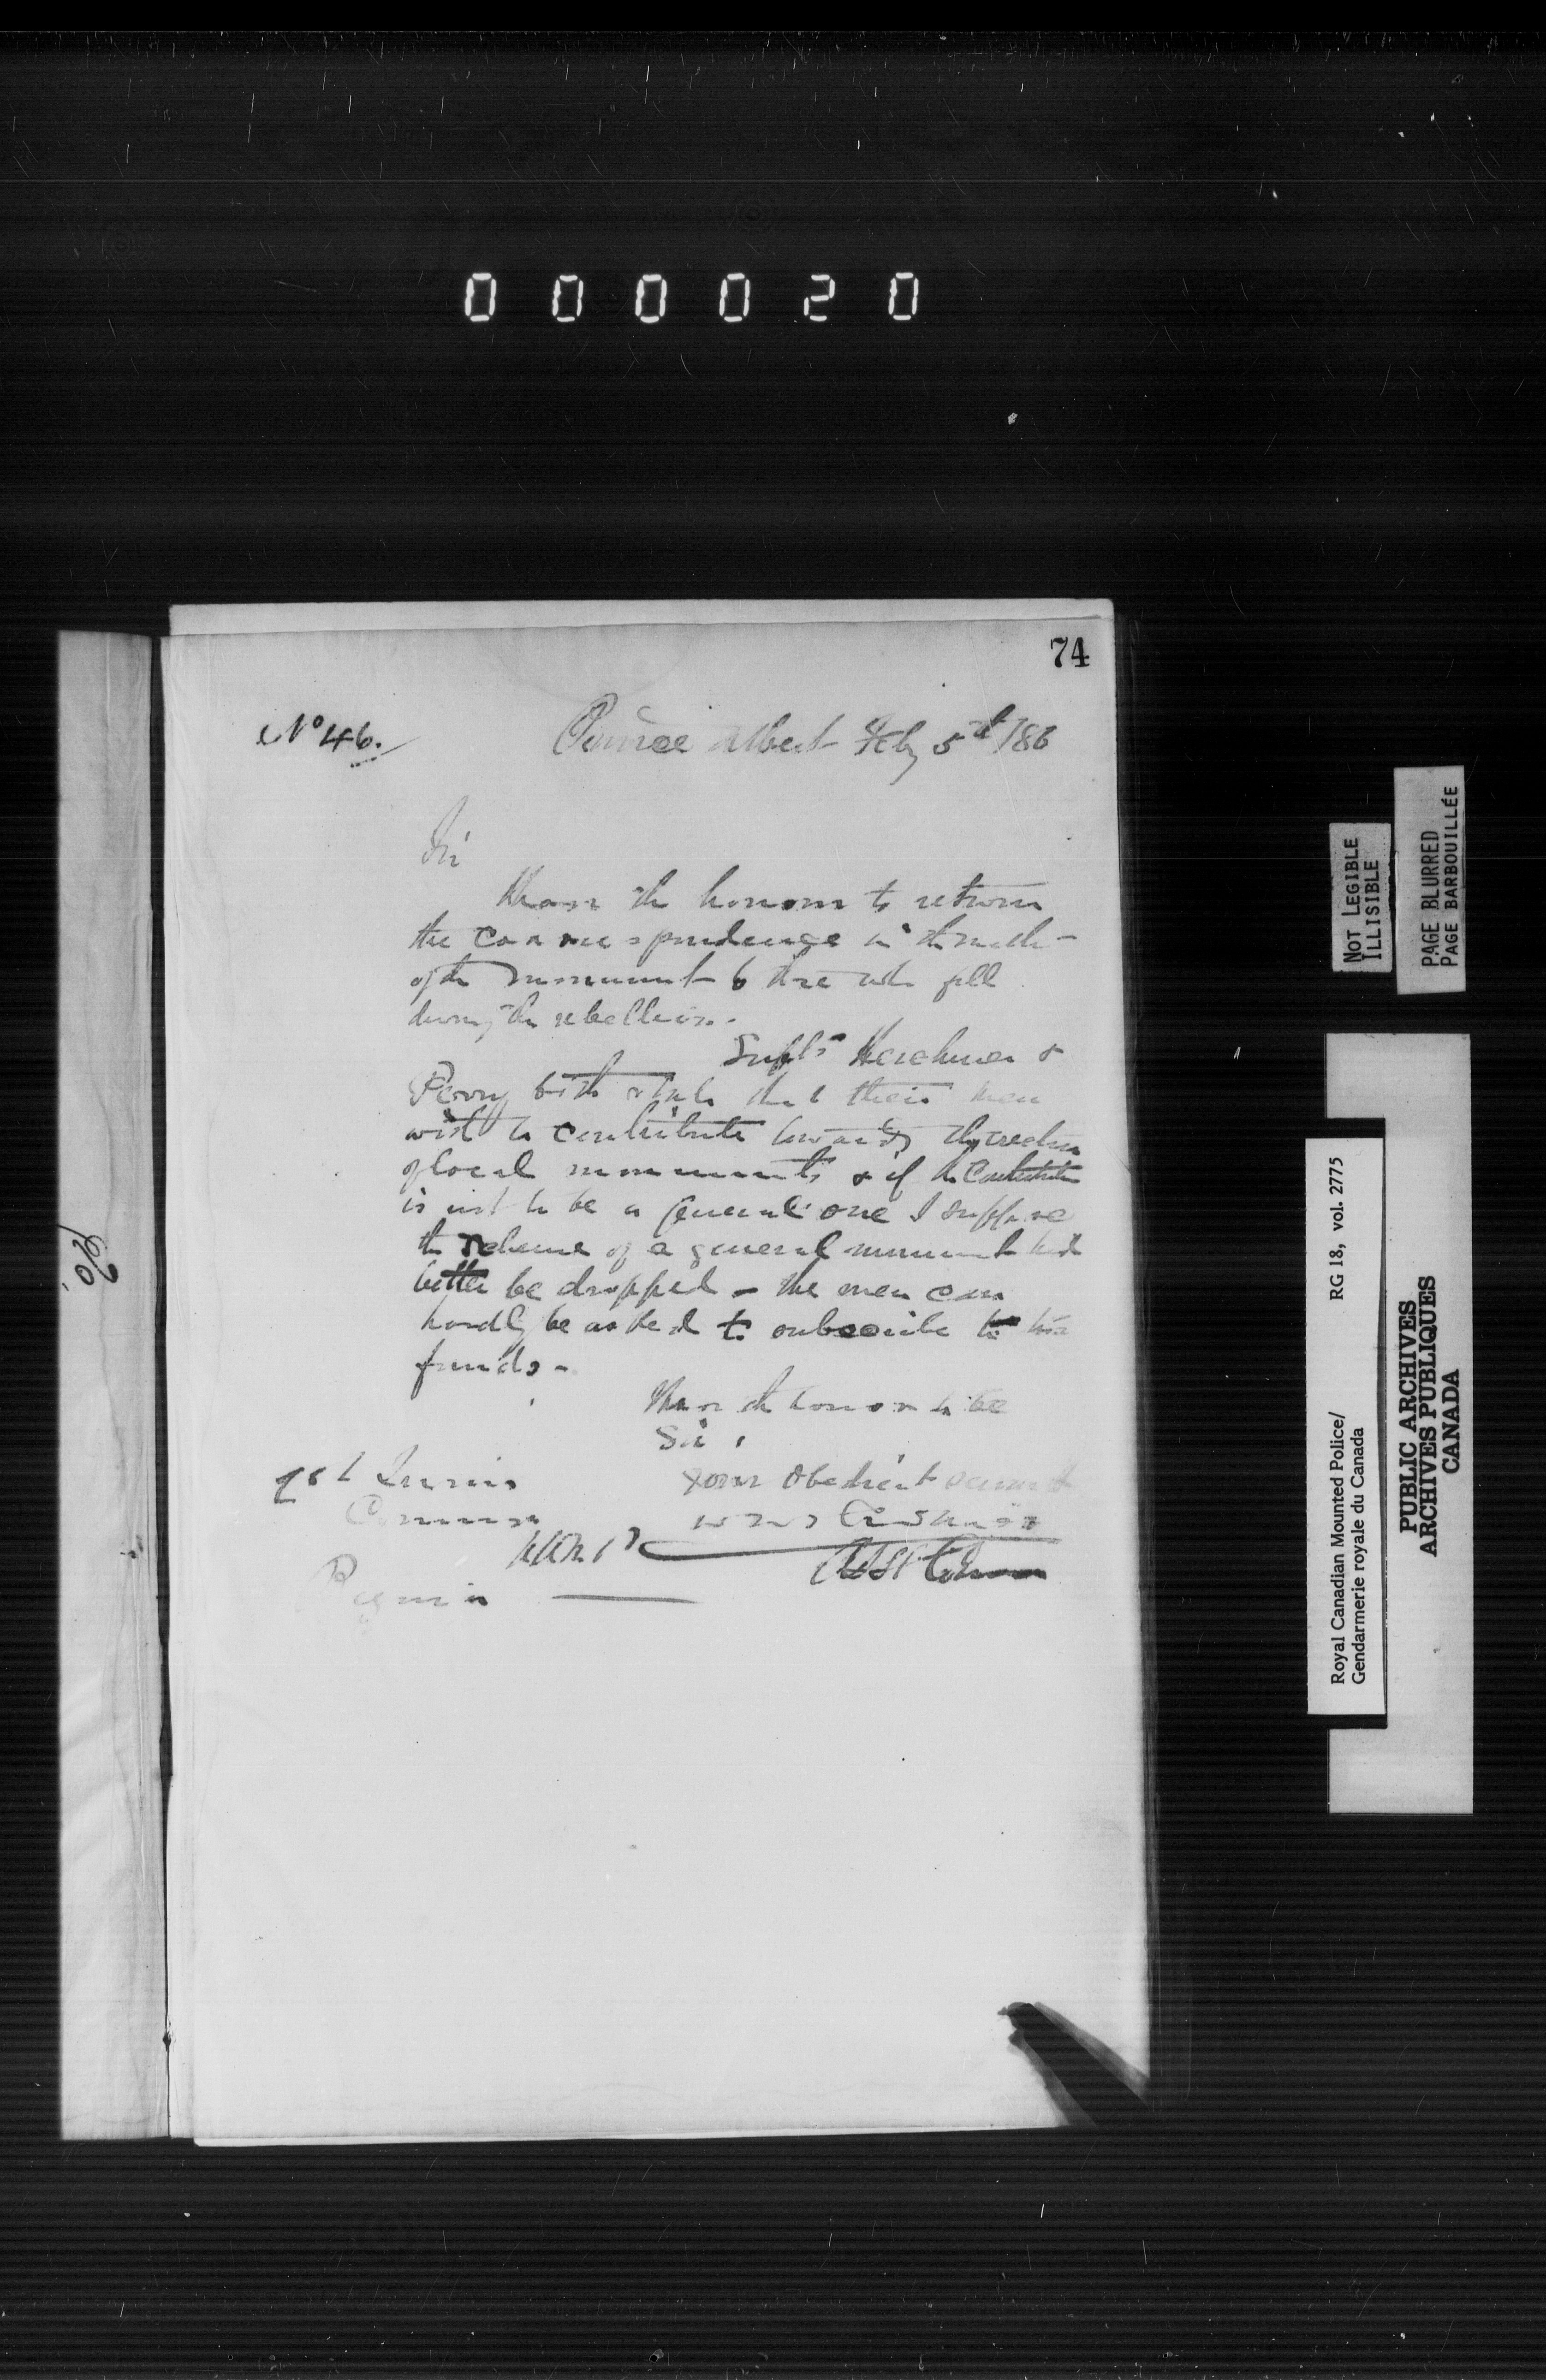 000020
74
No 46.
Prince Albert Feby 5th /86
Sir
I have the honour to return
the correspondence in the matter
of the monument to those who fell
during the rebellion.
Supts Herchmer &
Perry both state that their men
wish to contribute towards the erection
of local monuments & if the Contribution
is not to be a general one I suppose
the scheme of a general monument had
better be dropped - the men can
hardly be asked to subscribe to two
funds -
I have the honor to be
Sir,
Your Obedient servant
Asst Comm
Commr
NWMP
Regina
NOT LEGIBLE
ILLISIBLE
PAGE BLURRED
PAGE BARBOUILLÉE
Royal Canadian Mounted Police/
Gendarmerie royale du Canada
RG 18, vol. 2775
PUBLIC ARCHIVES
ARCHIVES PUBLIQUES
CANADA